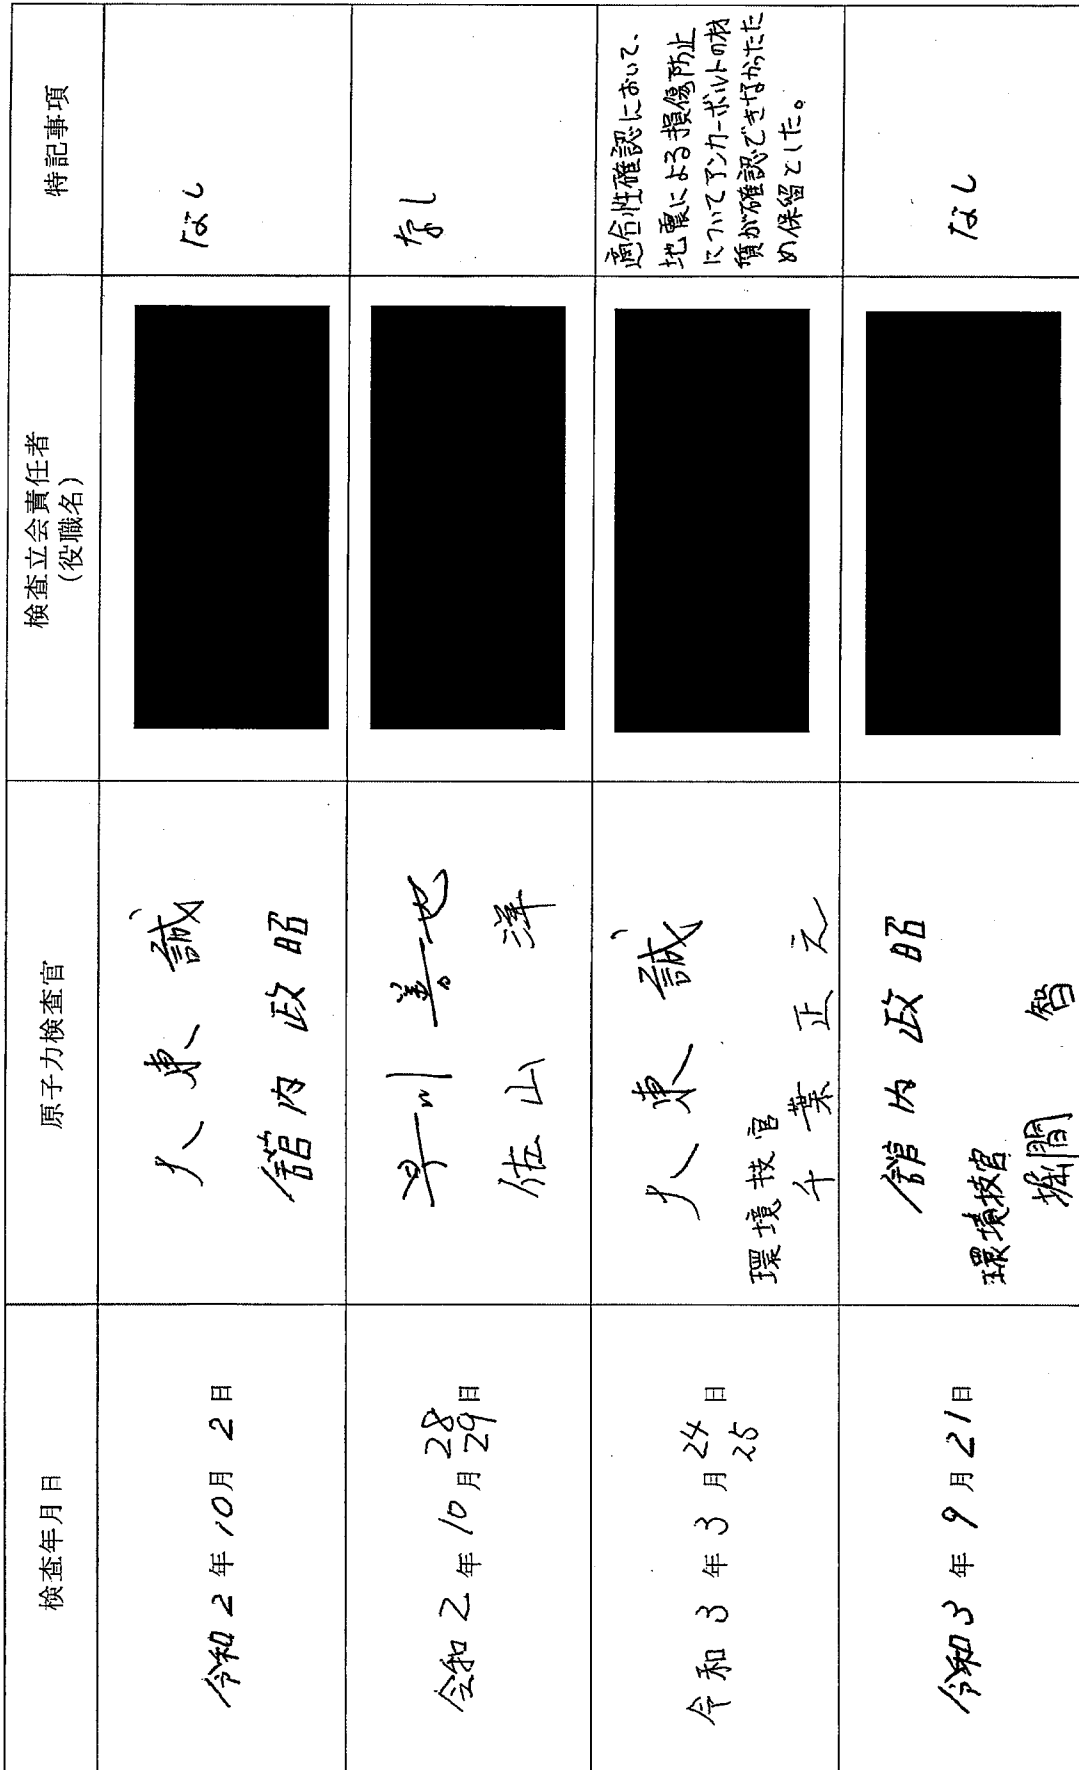 検査年月日
原子力検査官
検査立会責任者
(役職名)
特記事項
令和2年10月2日
大東 誠
舘内政昭
なし
令和2年10月28日
29
早川善也
佐山 洋
なし
令和3年3月24日
25
大東 誠
環境技官
千葉正彦
適合性確認において、
地震による損傷防止
についてアンカーボルトの材
質が確認できなかったた
め保留とした。
令和3年9月21日
舘内政昭
環境技官
堀間 智
なし